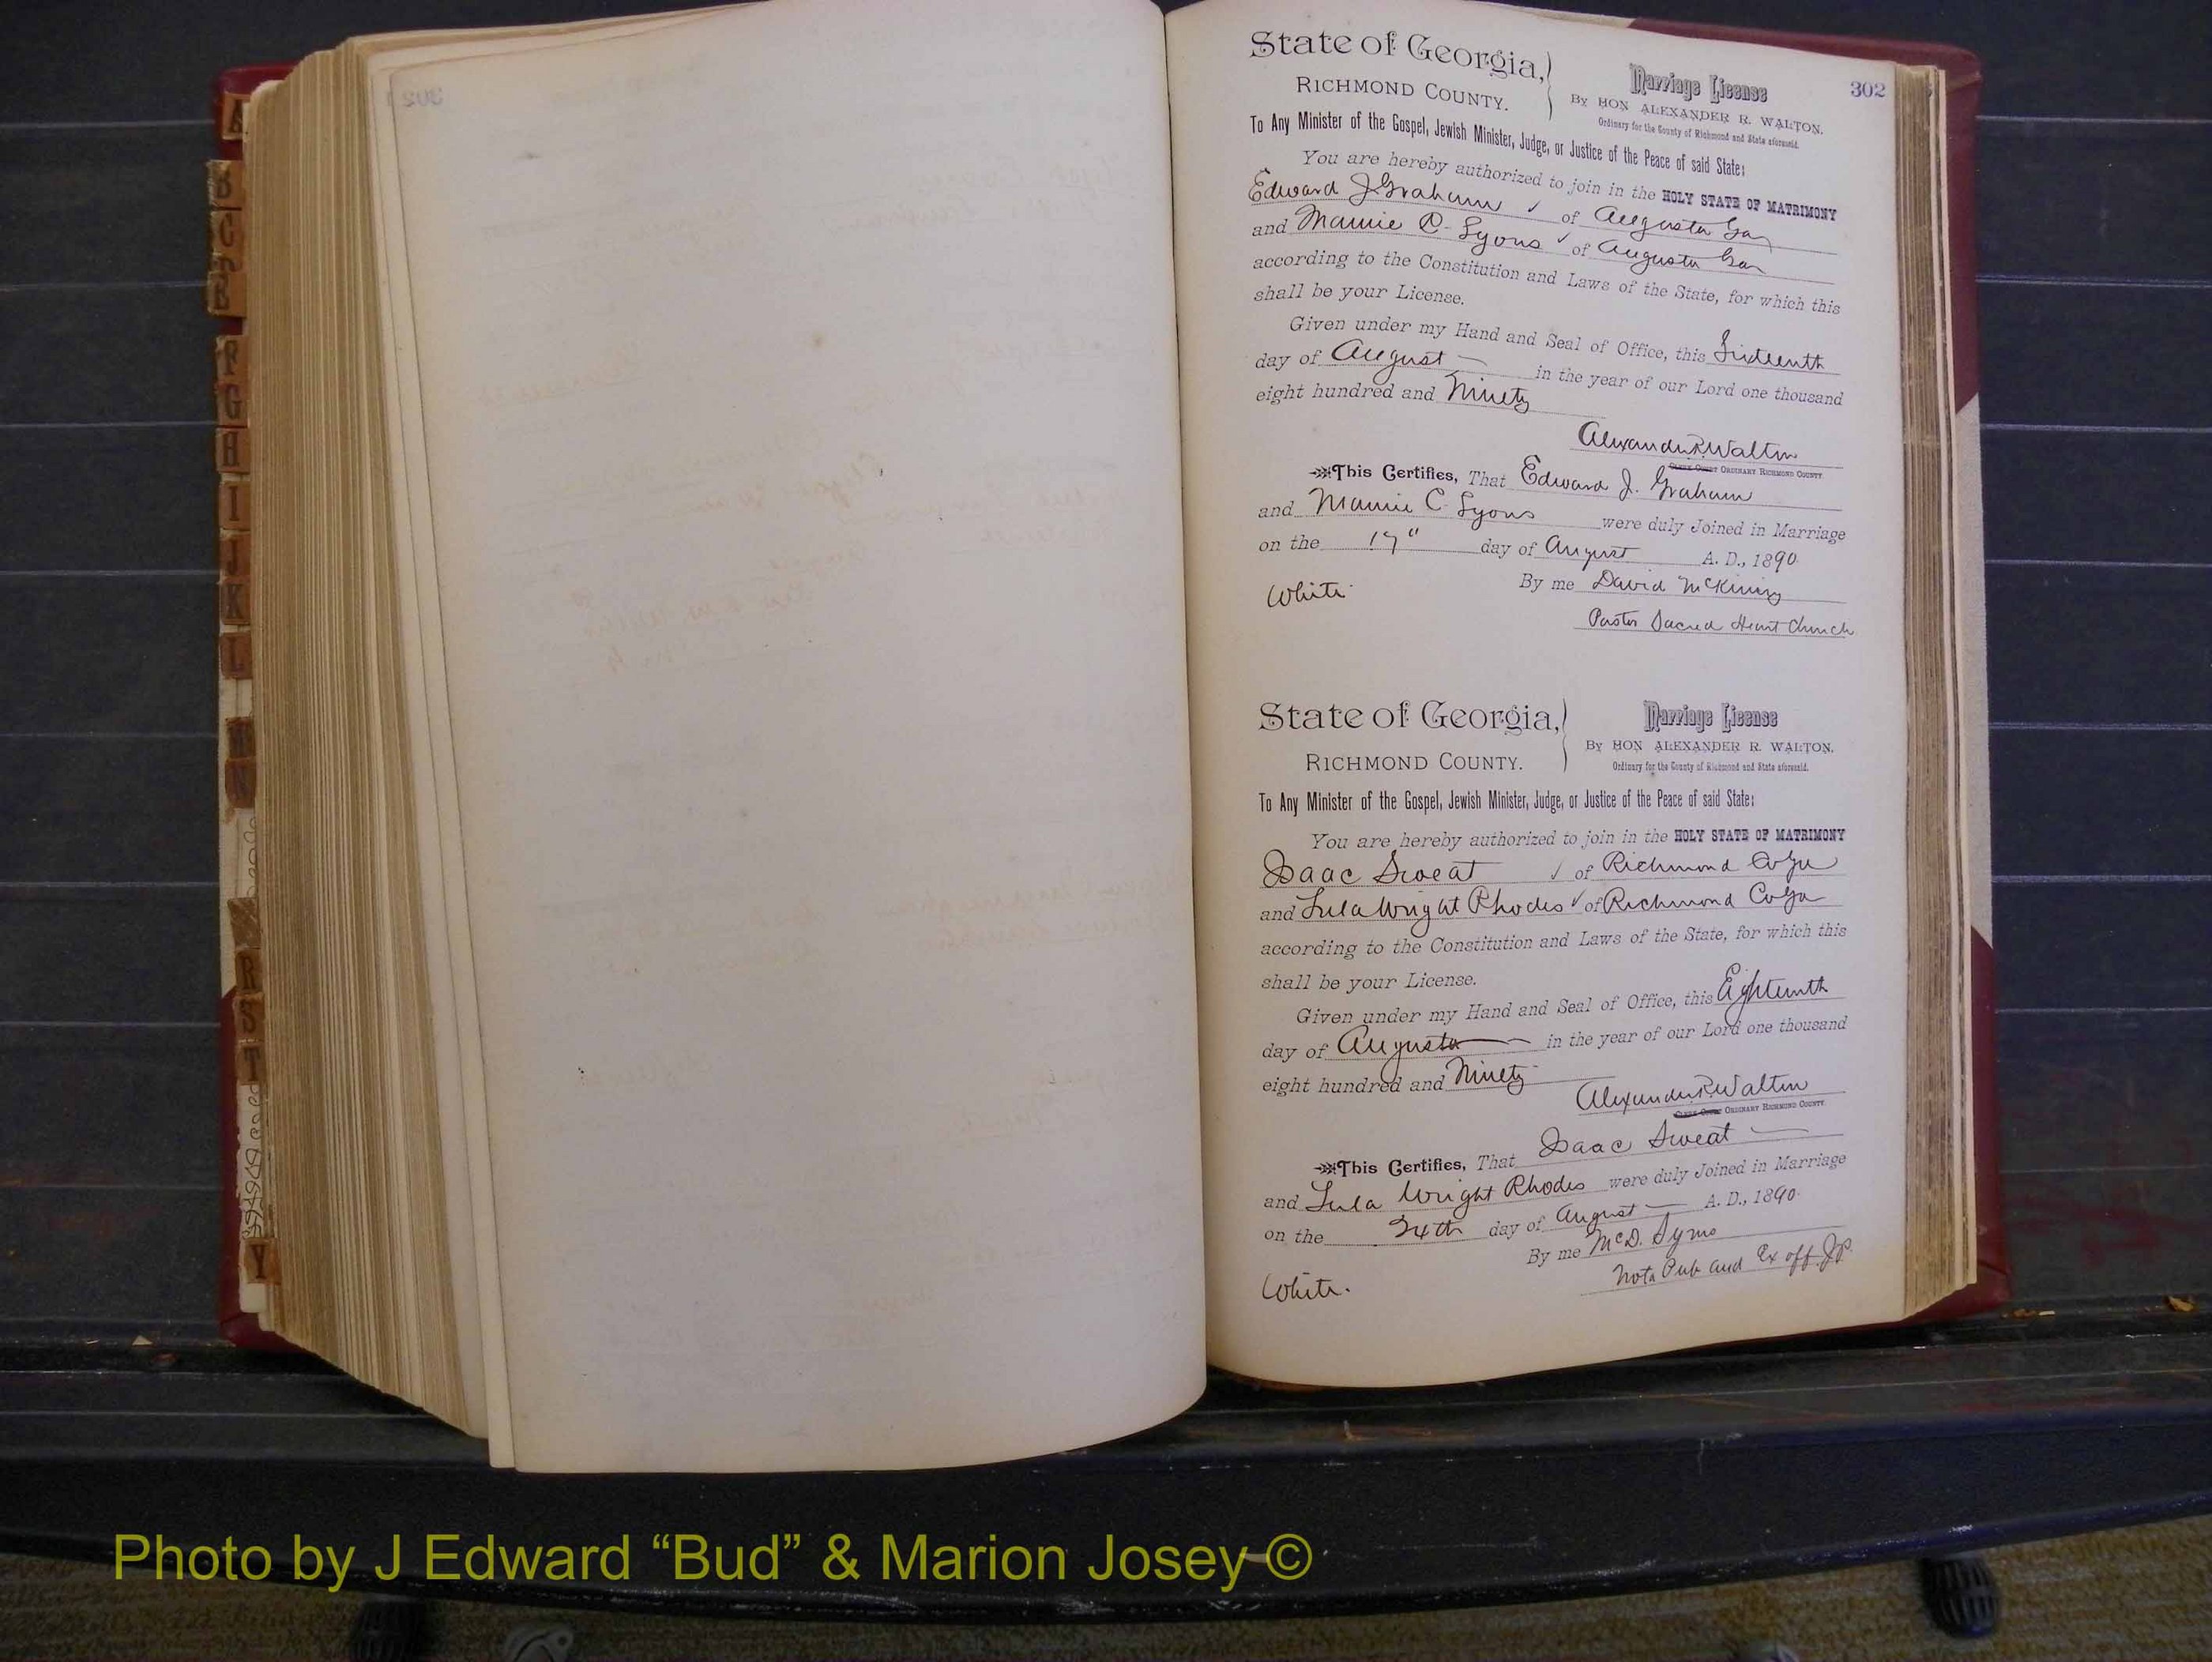 302
State of Georgia,
RICHMOND COUNTY.
Marriage License
By HON ALEXANDER R. WALTON.
Ordinary for the County of Richmond and State aforesaid.
To Any Minister of the Gospel, Jewish Minister, Judge, or Justice of the Peace of said State:
You are hereby authorized to join in the HOLY STATE OF MATRIMONY
Edward J. Graham ✓ of Augusta Ga
and Mamie C. Lyons ✓ of Augusta Ga
according to the Constitution and Laws of the State, for which this
shall be your License.
Given under my Hand and Seal of Office, this Sixteenth
day of August in the year of our Lord one thousand
eight hundred and Ninety
Alexander R Walton
CLERK COURT ORDINARY RICHMOND COUNTY
This Certifies, That Edward J. Graham
and Mamie C. Lyons were duly Joined in Marriage
on the 17" day of August A. D., 1890.
White By me David McKiniry
Pastor Sacred Heart Church
State of Georgia,
RICHMOND COUNTY.
Marriage License
By HON ALEXANDER R. WALTON.
Ordinary for the County of Richmond and State aforesaid.
To Any Minister of the Gospel, Jewish Minister, Judge, or Justice of the Peace of said State:
You are hereby authorized to join in the HOLY STATE OF MATRIMONY
Isaac Sweat ✓ of Richmond Co Ga
and Lula Wright Rhodes ✓ of Richmond Co Ga
according to the Constitution and Laws of the State, for which this
shall be your License.
Given under my Hand and Seal of Office, this Eighteenth
day of Augusta in the year of our Lord one thousand
eight hundred and Ninety
Alexander R Walton
CLERK COURT ORDINARY RICHMOND COUNTY.
This Certifies, That Isaac Sweat
and Lula Wright Rhodes were duly Joined in Marriage
on the 24th day of August A. D., 1890.
By me McD. Syms
White. Nota Pub and Ex off. J.P.
B
C
F
G
H
I
J
K
L
N
R
S
T
Y
Photo by J Edward “Bud” & Marion Josey ©